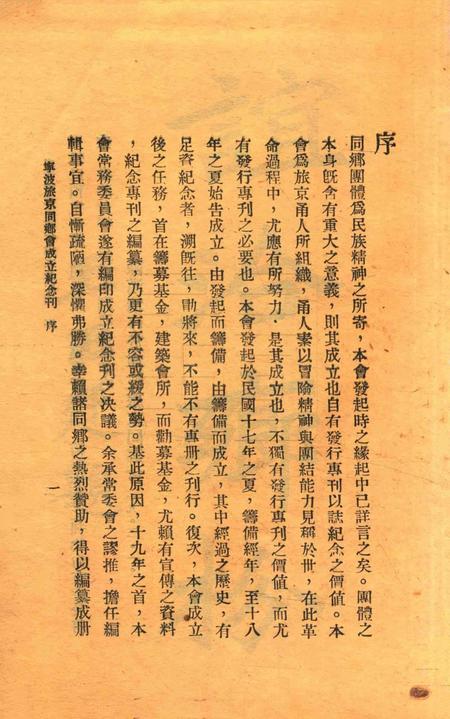 序
同鄉團體爲民族精神之所寄，本會發起時之緣起中已詳言之矣。團體之
本身既含有重大之意義，則其成立也自有發行專刊以誌紀念之價值。本
會爲旅京甬人所組織，甬人素以冒險精神與團結能力見稱於世，在此革
命過程中，尤應有所努力．是其成立也，不獨有發行專刊之價値，而尤
有發行專刊之必要也。本會發起於民國十七年之夏，籌備經年，至十八
年之夏始告成立。由發起而籌備，由籌備而成立，其中經過之歷史，有
足資紀念者，溯既往，勖將來，不能不有專冊之刊行。復次，本會成立
後之任務，首在籌募基金，建築會所，而勸募基金，尤賴有宣傳之資料
，紀念專刊之編纂，乃更有不容或緩之勢。基此原因，十九年之首，本
會常務委員會遂有編印成立紀念刊之决議。余承常委會之謬推，擔任編
輯事宜。自慚疏陋，深懼弗勝。幸賴諸同鄉之熱烈贊助，得以編纂成册
寧波旅京同鄉會成立紀念刊　序
一